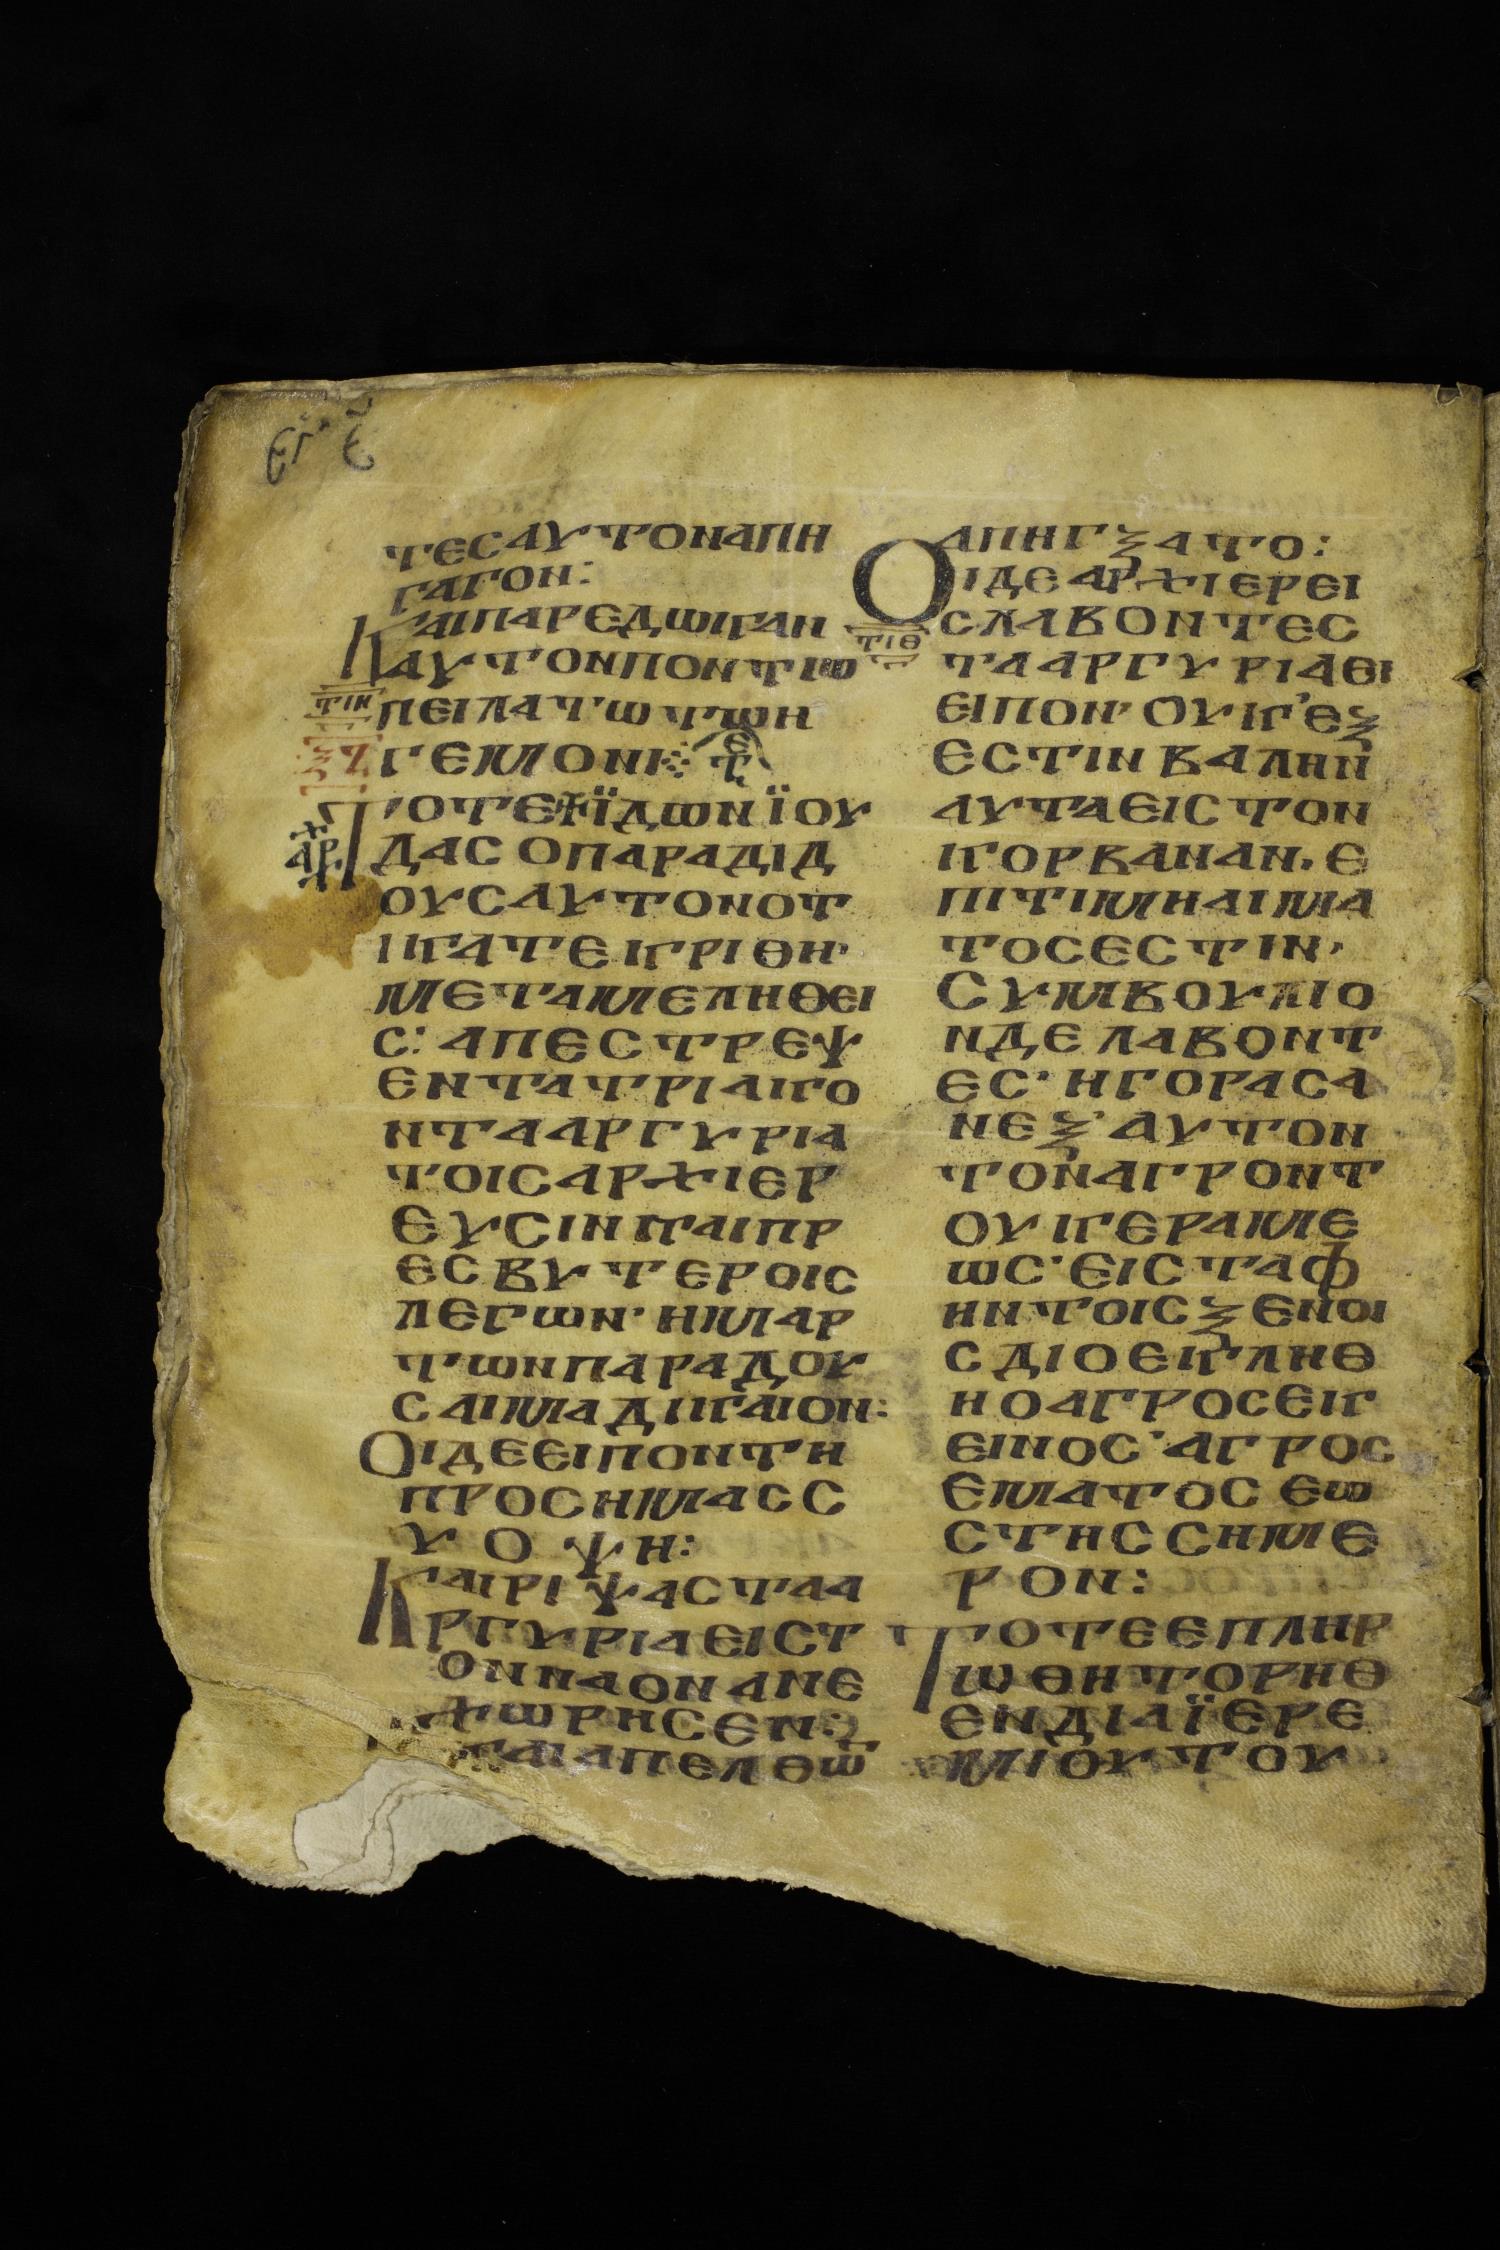 ΤΕСΑΥΤΟΝΑΠΗ
ΓΑΓΟΝ:
ΚΑΙΠΑΡΕΔΩΚΑΝ
ΑΥΤΟΝΠΟΝΤΙΩ
ΠΕΙΛΑΤΩΤΩΗ
ΓΕΜΟΝΙ
ΤΟΤΕ ΪΔΩΝΪΟΥ
ΔΑСΟΠΑΡΑΔΙΔ
ΟΥСΑΥΤΟΝΟΤ
ΙΚΑΤΕΚΡΙΘΗ·
ΜΕΤΑΜΕΛΗΘΕΙ
С: ΑΠΕСΤΡΕΨ
ΕΝΤΑΤΡΙΑΚΟ
ΝΤΑΑΡΓΥΡΙΑ
ΤΟΙСΑΡΧΙΕΡ
ΕΥСΙΝΚΑΙΠΡ
ΕСΒΥΤΕΡΟΙС
ΛΕΓΩΝ· ΗΜΑΡ
ΤΩΝΠΑΡΑΔΟΥ
СΑΙΜΑΔΙΚΑΙΟΝ:
ΟΙΔΕΕΙΠΟΝΤΗ
ΠΡΟСΗΜΑСС
ΥΟΨΗ:
ΚΑΙΡΙΨΑСΤΑΑ
ΡΓΥΡΙΑΕΙСΤ
ΟΝΝΑΟΝΑΝΕ
ΧΩΡΗСΕΝ:
ΚΑΙΑΠΕΛΘΩ
ΑΠΗΓΞΑΤΟ:
ΟΙΔΕΑΡΧΙΕΡΕΙ
СΛΑΒΟΝΤΕС
ΤΑΑΡΓΥΡΙΑΘΙ
ΕΙΠΟΝ· ΟΥΚ'ΕΞ
ΕСΤΙΝΒΑΛΗΝ
ΑΥΤΑΕΙСΤΟΝ
ΚΟΡΒΑΝΑΝ· Ε
ΠΙΤΙΜΗΑΙΜΑ
ΤΟСΕСΤΙΝ·
СΥΜΒΟΥΛΙΟ
ΝΔΕΛΑΒΟΝΤ
ΕС· ΗΓΟΡΑСΑ
ΝΕΞ'ΑΥΤΟΝ
ΤΟΝΑΓΡΟΝΤ
ΟΥΚΕΡΑΜΕ
ΩС· ΕΙСΤΑΦ
ΗΝΤΟΙСΞΕΝΟΙ
СΔΙΟΕΚΛΗΘ
ΗΟΑΓΡΟСΕΚ
ΕΙΝΟС· ΑΓΡΟС
ΕΜΑΤΟСΕΩ
СΤΗССΗΜΕ
ΡΟΝ:
ΤΟΤΕΕΠΛΗΡ
ΩΘΗΤΟΡΗΘ
ΕΝΔΙΑΪΕΡΕ
ΜΙΟΥΤΟΥ